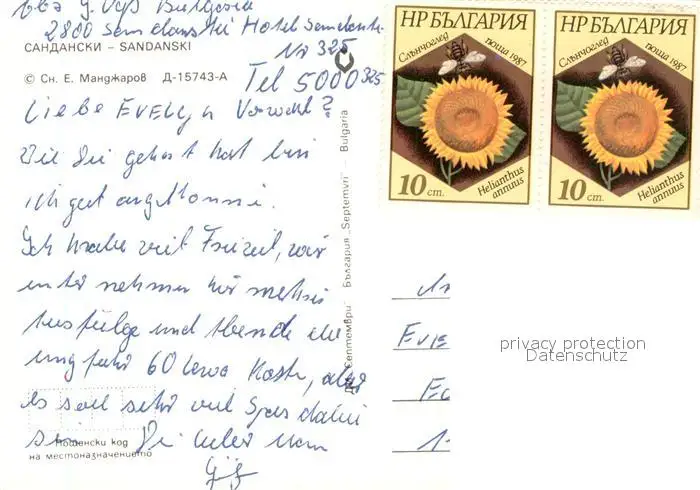 Bulgaria
2800 Sandanski Hotel Sandanski
Nr 325
САНДАНСКИ – SANDANSKI
© Сн. Е. Манджаров Д-15743-А
Tel 5000 325
Liebe Evelyn
Wie Du gehört hast bin
ich gut angekommen.
Ich habe viel Freizeit, wir
unternehmen hir mehrere
Ausflüge und Abende die
ungefähr 60 Lewa Kosten, aber
es soll sehr viel Spas dabei
sein.
Пощенски код
на местоназначението
ДП „Септември“ България „Septemvri“ – Bulgaria
НР БЪЛГАРИЯ
Слънчоглед
поща 1987
10 ст.
Helianthus
annuus
НР БЪЛГАРИЯ
Слънчоглед
поща 1987
10 ст.
Helianthus
annuus
privacy protection
Datenschutz